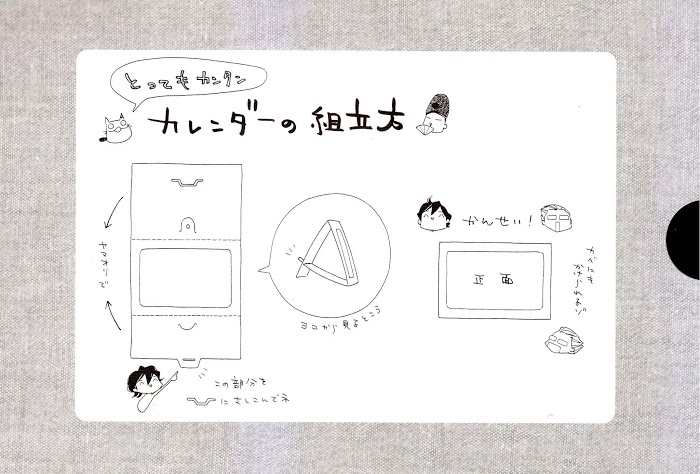 とってもカンタン
カレンダーの組立方
ヤマオリで
ヨコから見るとこう
この部分を
にさしこんでネ
かんせい!
正面
カベにも
かけられるゾ